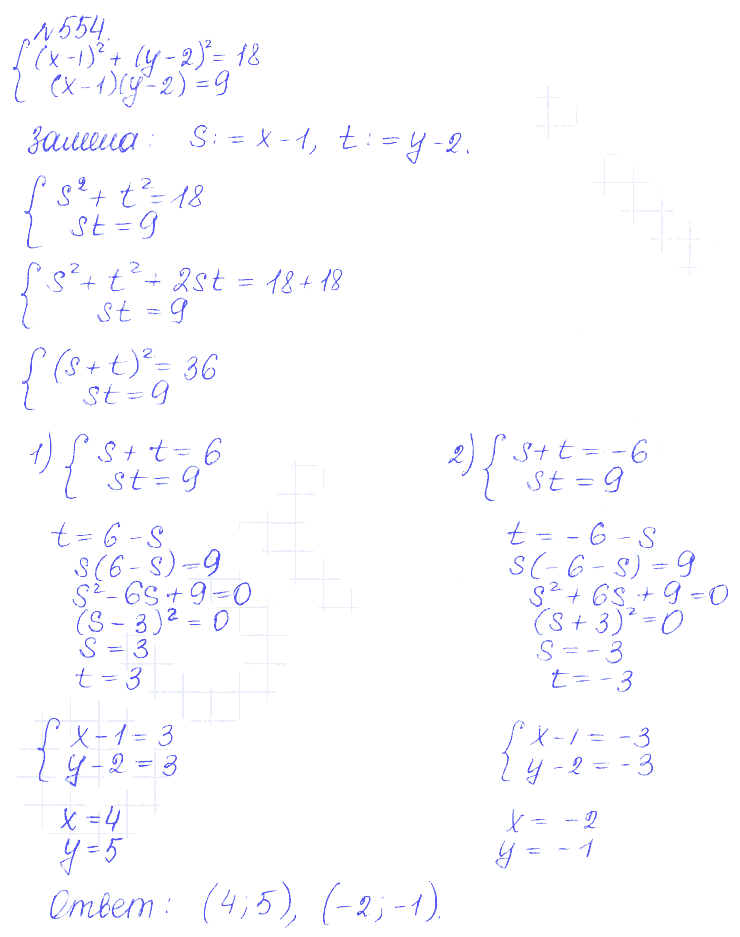 №554.
{ (x-1)² + (y-2)² = 18
(x-1)(y-2) = 9
Замена: S := x-1, t := y-2.
{ s² + t² = 18
st = 9
{ s² + t² + 2st = 18+18
st = 9
{ (s+t)² = 36
st = 9
1) { s + t = 6
st = 9
t = 6 - s
s(6-s) = 9
s² - 6s + 9 = 0
(s-3)² = 0
s = 3
t = 3
{ x-1 = 3
y-2 = 3
x = 4
y = 5
2) { s+t = -6
st = 9
t = -6 - s
s(-6-s) = 9
s² + 6s + 9 = 0
(s+3)² = 0
s = -3
t = -3
{ x-1 = -3
y-2 = -3
x = -2
y = -1
Ответ: (4;5), (-2;-1).